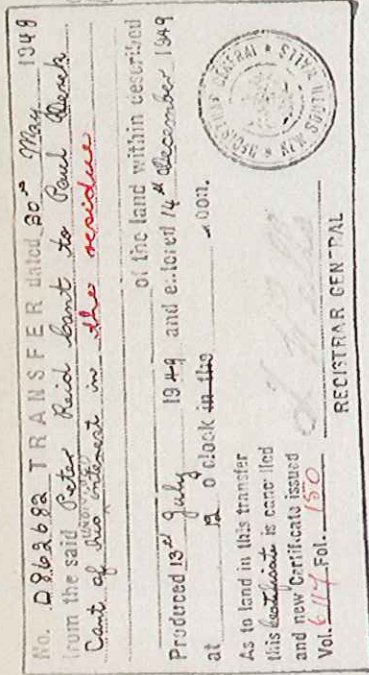 No. D962682 TRANSFER dated 20th May 1948
from the said Peter Reid Cant to Paul
Cant of his interest in the residue
of the land within described
Produced 13th July 1949 and entered 14th December 1949
at 12 o'clock in the noon.
As to land in this transfer
this Certificate is cancelled
and new Certificate issued
Vol. 6117 Fol. 150
REGISTRAR GENERAL
REGISTRAR GENERAL * NEW SOUTH WALES *